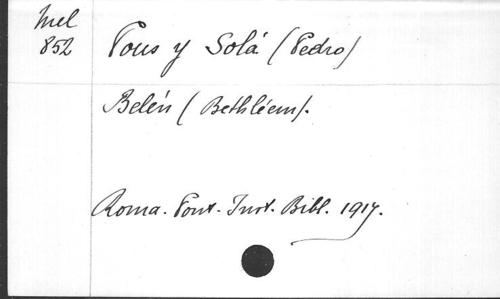 Mel
852
Pous y Solá (Pedro)
Belén (Bethléem).
Roma. Pont. Inst. Bibl. 1917.